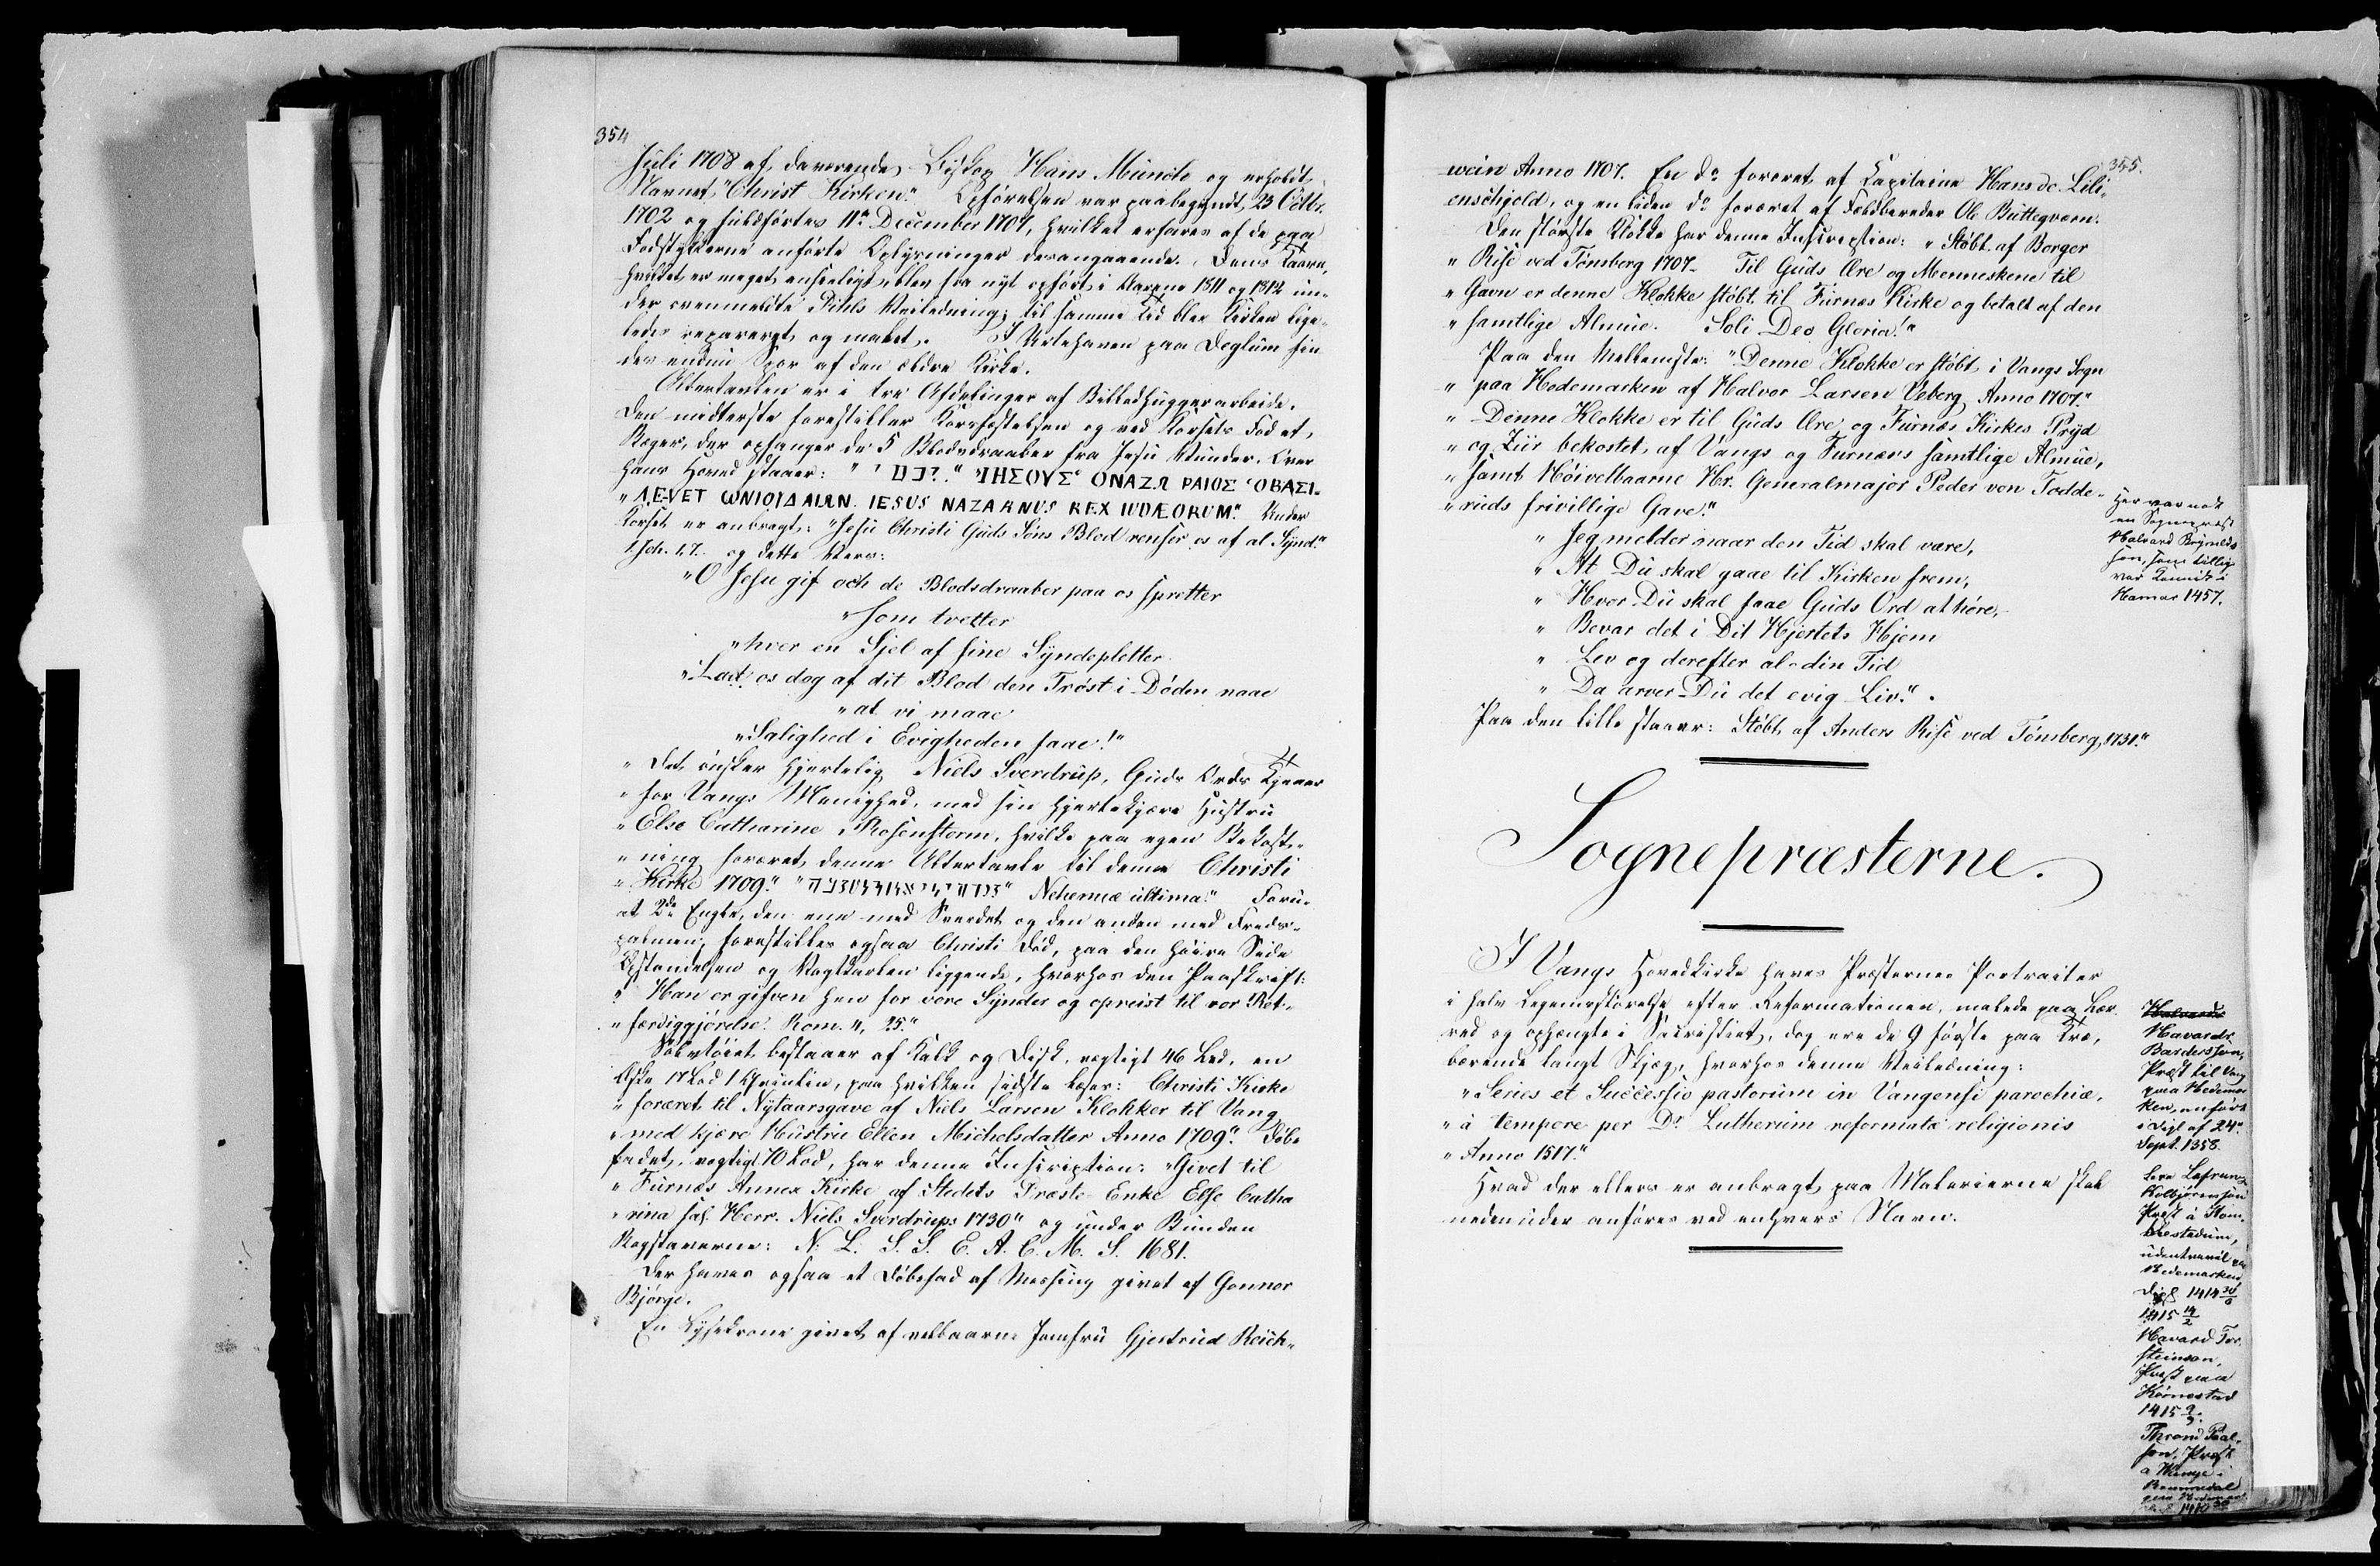 354
Juli 1708 af daværende Biskop Hans Munch og erholdt
Navnet "Christ Kirken." Opførelsen var paabegyndt 23 Octbr.
1702 og fuldførtes 11te December 1707, hvilket erfares af de paa
Fodstykkerne anførte Oplysninger desangaaende. Dens Taarn,
hvilket er meget anseeligt, blev fra nyt opført i Aarene 1811 og 1812 un-
der ovenmeldte Pihls Veiledning; til samme Tid blev Kirken lige-
ledes repareret og malet. I Urtehaven paa Deglum fin-
des endnu Spor af den ældre Kirke.
Altertavlen er i tre Afdelinger af Billedhuggerarbeide.
Den midterste forestiller Korsfæstelsen og ved Korsets Fod et
Bæger, der opfanger de 5 Blodsdraaber fra Jesu Vunder. Over
hans Hoved staaer: " ΙΗΣΟΥΣ ΟΝΑΖΩ ΡΑΙΟΣ ΟΒΑΣΙ-
" ΛΕVΕΤ ΩΝΙΟΙΔΑΙΩΝ. IESUS NAZARNUS REX IUDÆORUM." Under
Korset er anbragt: "Jesu Christi Guds Søns Blod renser os af al Synd."
1 Joh. 1,7. og dette Vers:
"O Jesu gif och de Blodsdraaber paa os spretter
"som tvetter
"hver en Sjel af sine Syndepletter
"Lad os dog af dit Blod den Trøst i Døden naae
"at vi maae
"Salighed i Evigheden faae!"
" Det ønsker hjertelig Niels Sverdrup, Guds Ords Tjener
" for Vangs Menighed, med sin hjertekjære Hustru
" Else Catharine Rosenstorm, hvilke paa egen Bekost-
" ning foræret denne Altertavle til denne Christi
" Kirke 1709." Nehemiæ ultima." Foru-
at 2de Engle, den ene med Sverdet og den anden med Freds-
palmen, forestilles ogsaa Christi Død, paa den høire Side
Opstandelsen og Vagtkarlen liggende, hvorhos den Paaskrift:
" Han er gifven hen for vore Synder og opreist til vor Ret-
" færdiggjørelse. Rom. 4, 25."
Sølvtøiet bestaaer af Kalk og Disk, vægtigt 46 Lod, en
Æske 17 Lod 1 Qvintin, paa hvilken sidste læses: Christi Kirke
" foræret til Nytaarsgave af Niels Larsen Klokker til Vang
" med kjære Hustru Ellen Michelsdatter Anno 1709." Døbe-
fadet, vægtigt 70 Lod, har denne Inscription: "Givet til
" Furnæs Annex Kirke af Stedets Præste-Enke Else Catha
" rina sal. Herr. Niels Sverdrups 1730" og under Bunden
Bogstaverne: N. L. S. S. E. A. C. M. S. 1681.
Der haves ogsaa et Døbefad af Messing givet af Gonnor
Bjørge.
En Lysekrone givet af velbaarne Jomfru Gjertrud Reich-
355.
wein Anno 1707. En do foræret af Capitaine Hans de Lili-
enschjold, og en liden do foræret af Feldbereder Ole Buttegværn.
Den største Klokke har denne Inscription: "Støbt af Borger
" Rise ved Tønsberg 1707. Til Guds Ære og Menneskene til
" Gavn er denne Klokke støbt til Furnæs Kirke og betalt af den
" samtlige Almue. Soli Deo Gloria!"
Paa den Mellemste: "Denne Klokke er støbt i Vangs Sogn
" paa Hedemarken af Halvor Larsen Veberg Anno 1707."
" Denne Klokke er til Guds Ære og Furnæs Kirkes Pryd
" og Ziir bekostet af Vangs og Furnæs samtlige Almue,
" samt Høivelbaarne Hr. Generalmajor Peder von Todde-
" ruds frivillige Gave."
" Jeg melder naar den Tid skal være,
" At Du skal gaae til Kirken frem,
" Hvor Du skal faae Guds Ord at høre,
" Bevar det i Dit Hjertets Hjem
" Lev og derefter al din Tid
" Da arver Du det evig Liv."
Paa den lille staaer: Støbt af Anders Rise ved Tønsberg, 1731."
Her var nok
en Sognepræst
Halvard
søn, som tillige
var Kannik i
Hamar 1457.
Sognepræsterne.
I Vangs Hovedkirke haves Præsternes Portraiter
i halv Legemsstørrelse efter Reformationen, malede paa Lær-
red og ophængte i Sacristiet, dog ere de 9 første paa Træ,
bærende langt Skjæg, hvorhos denne Veiledning:
" Series et Successio pastorum in Vangensi parochiæ,
" à tempore per Dr Lutherum reformatæ religionis
" Anno 1517."
Hvad der ellers er anbragt paa Malerierne skal
nedenunder anføres ved enhvers Navn.
Havards
Bardersson,
Præst til Vang
paa Hedemar
ken, anført
i Dipl af 24de
Sept. 1358.
Sera
Kolbjørnsson
Præst à
udentvivl paa
Hedemarken
Dipl 1414
1415 14/2
Havard Tor
steinson,
Præst paa
1415
Thrond Paal-
son, Præst
a
paa Hedemark